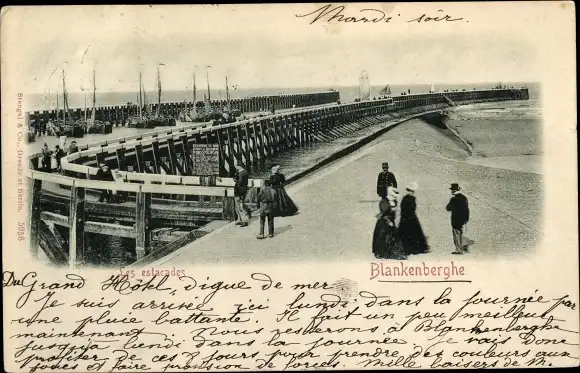 Mardi soir.
Stengel & Co., Dresde et Berlin. 5938
Les estacades
Blankenberghe
Du Grand Hôtel, digue de mer
Je suis arrivée ici lundi dans la journée par
une pluie battante. Il fait un peu meilleur
maintenant. Nous resterons à Blankenberghe
jusqu'à lundi dans la journée. Je vais donc
profiter de ces 8 jours pour prendre des couleurs aux
joues et faire provision de forces. Mille baisers de M.